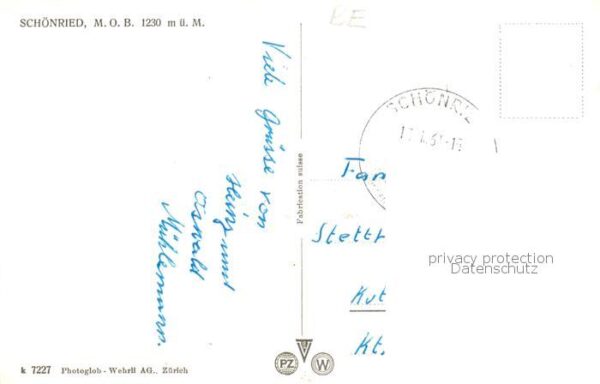 SCHÖNRIED, M. O. B. 1230 m ü. M.
KE
Viele Grüsse von
Heinz und
Oswald
Mühlemann.
Fabrication suisse
SCHÖNRI
Fam
Stett
Kt.
privacy protection
Datenschutz
k 7227 Photoglob-Wehrli AG., Zürich
PZ W